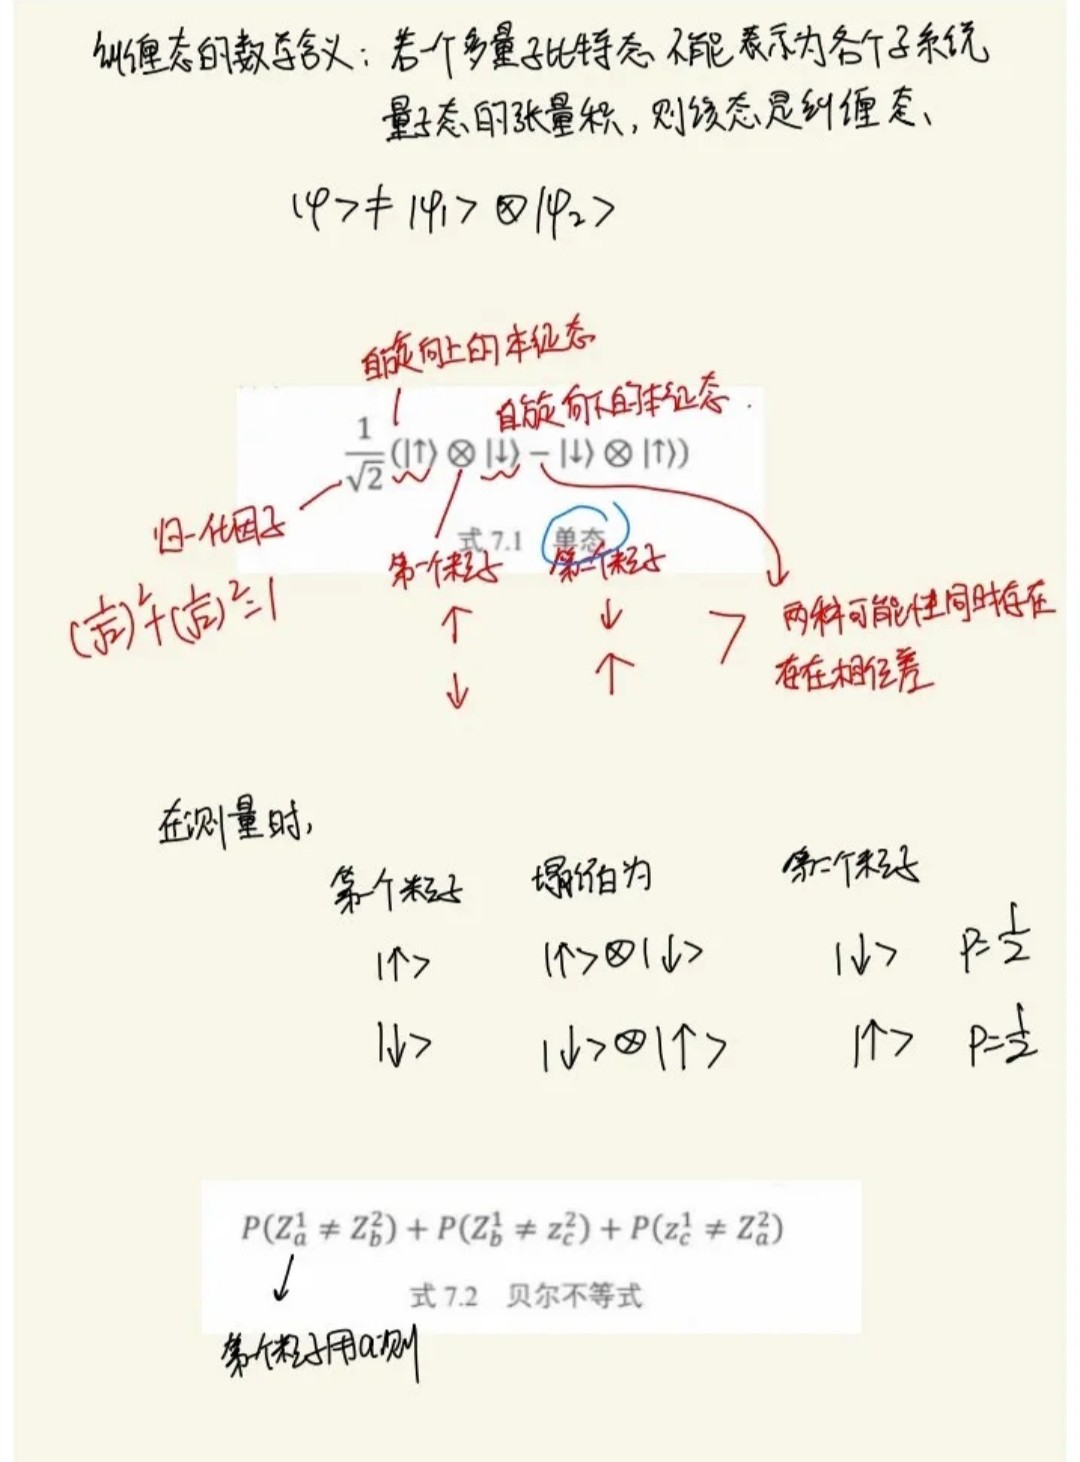 纠缠态的数学含义：若一个多量子比特态不能表示为各个子系统
量子态的张量积，则该态是纠缠态、
|φ> ≠ |φ₁> ⊗ |φ₂>
自旋向上的本征态
自旋向下的本征态
1/√2 (|↑⟩ ⊗ |↓⟩ − |↓⟩ ⊗ |↑⟩)
归一化因子
式 7.1 单态
第一个粒子 第二个粒子
(1/√2)² + (1/√2)² = 1
↑ ↓
↓ ↑
两种可能性同时存在
存在相位差
在测量时，
第一个粒子 塌缩为 第二个粒子
|↑> |↑>⊗|↓> |↓> P=1/2
|↓> |↓>⊗|↑> |↑> P=1/2
P(Z_a^1 ≠ Z_b^2) + P(Z_b^1 ≠ z_c^2) + P(z_c^1 ≠ Z_a^2)
式 7.2 贝尔不等式
第一个粒子用a测